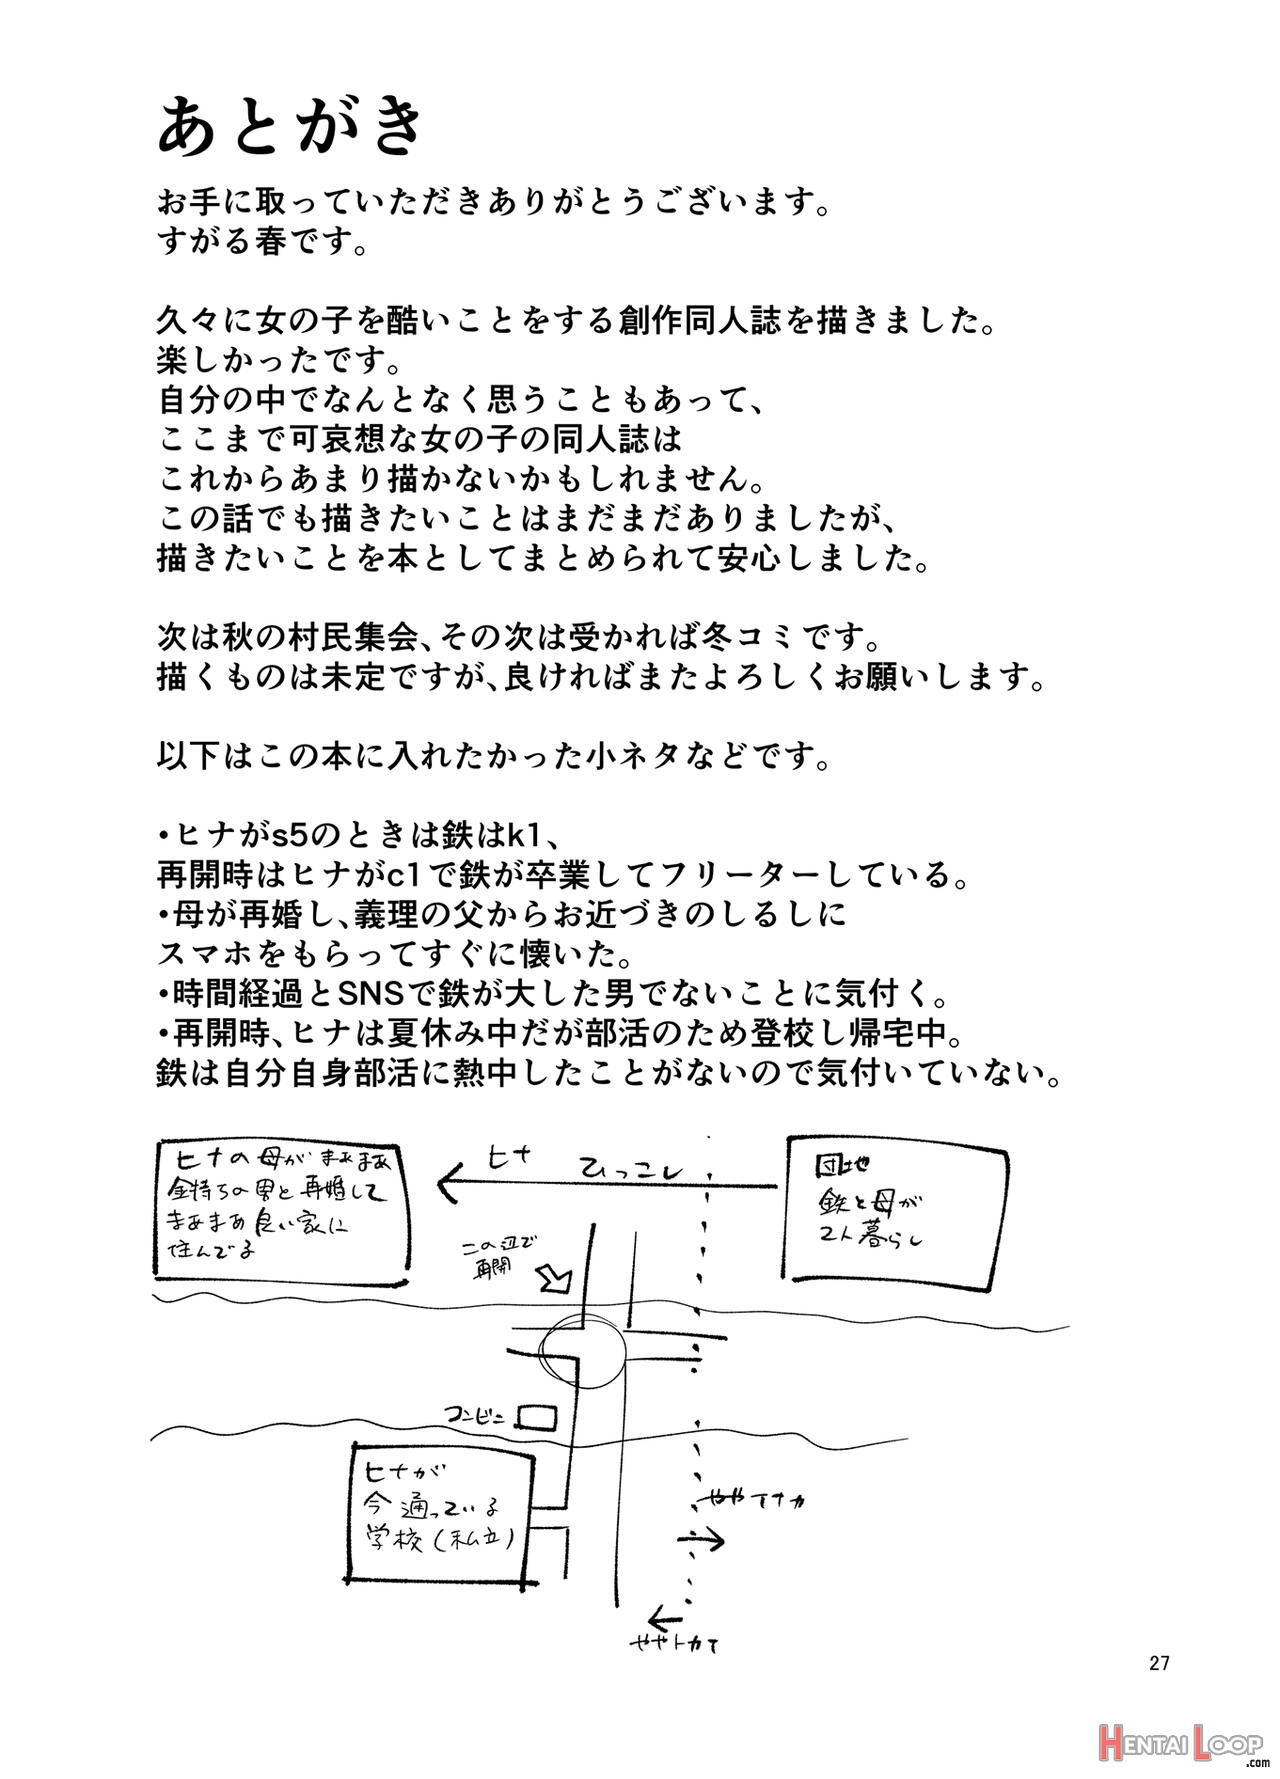 あとがき
お手に取っていただきありがとうございます。
すがる春です。
久々に女の子を酷いことをする創作同人誌を描きました。
楽しかったです。
自分の中でなんとなく思うこともあって、
ここまで可哀想な女の子の同人誌は
これからあまり描かないかもしれません。
この話でも描きたいことはまだまだありましたが、
描きたいことを本としてまとめられて安心しました。
次は秋の村民集会、その次は受かれば冬コミです。
描くものは未定ですが、良ければまたよろしくお願いします。
以下はこの本に入れたかった小ネタなどです。
・ヒナがs5のときは鉄はk1、
再開時はヒナがc1で鉄が卒業してフリーターしている。
・母が再婚し、義理の父からお近づきのしるしに
スマホをもらってすぐに懐いた。
・時間経過とSNSで鉄が大した男でないことに気付く。
・再開時、ヒナは夏休み中だが部活のため登校し帰宅中。
鉄は自分自身部活に熱中したことがないので気付いていない。
ヒナの母がまぁまぁ
金持ちの男と再婚して
まぁまぁ良い家に
住んでる
ヒナ ひっこし
団地
鉄と母が
2人暮らし
この辺で
再開
コンビニ
ヒナが
今通っている
学校(私立)
ややイナカ
ややトカイ
27
HENTAI LOOP
.com